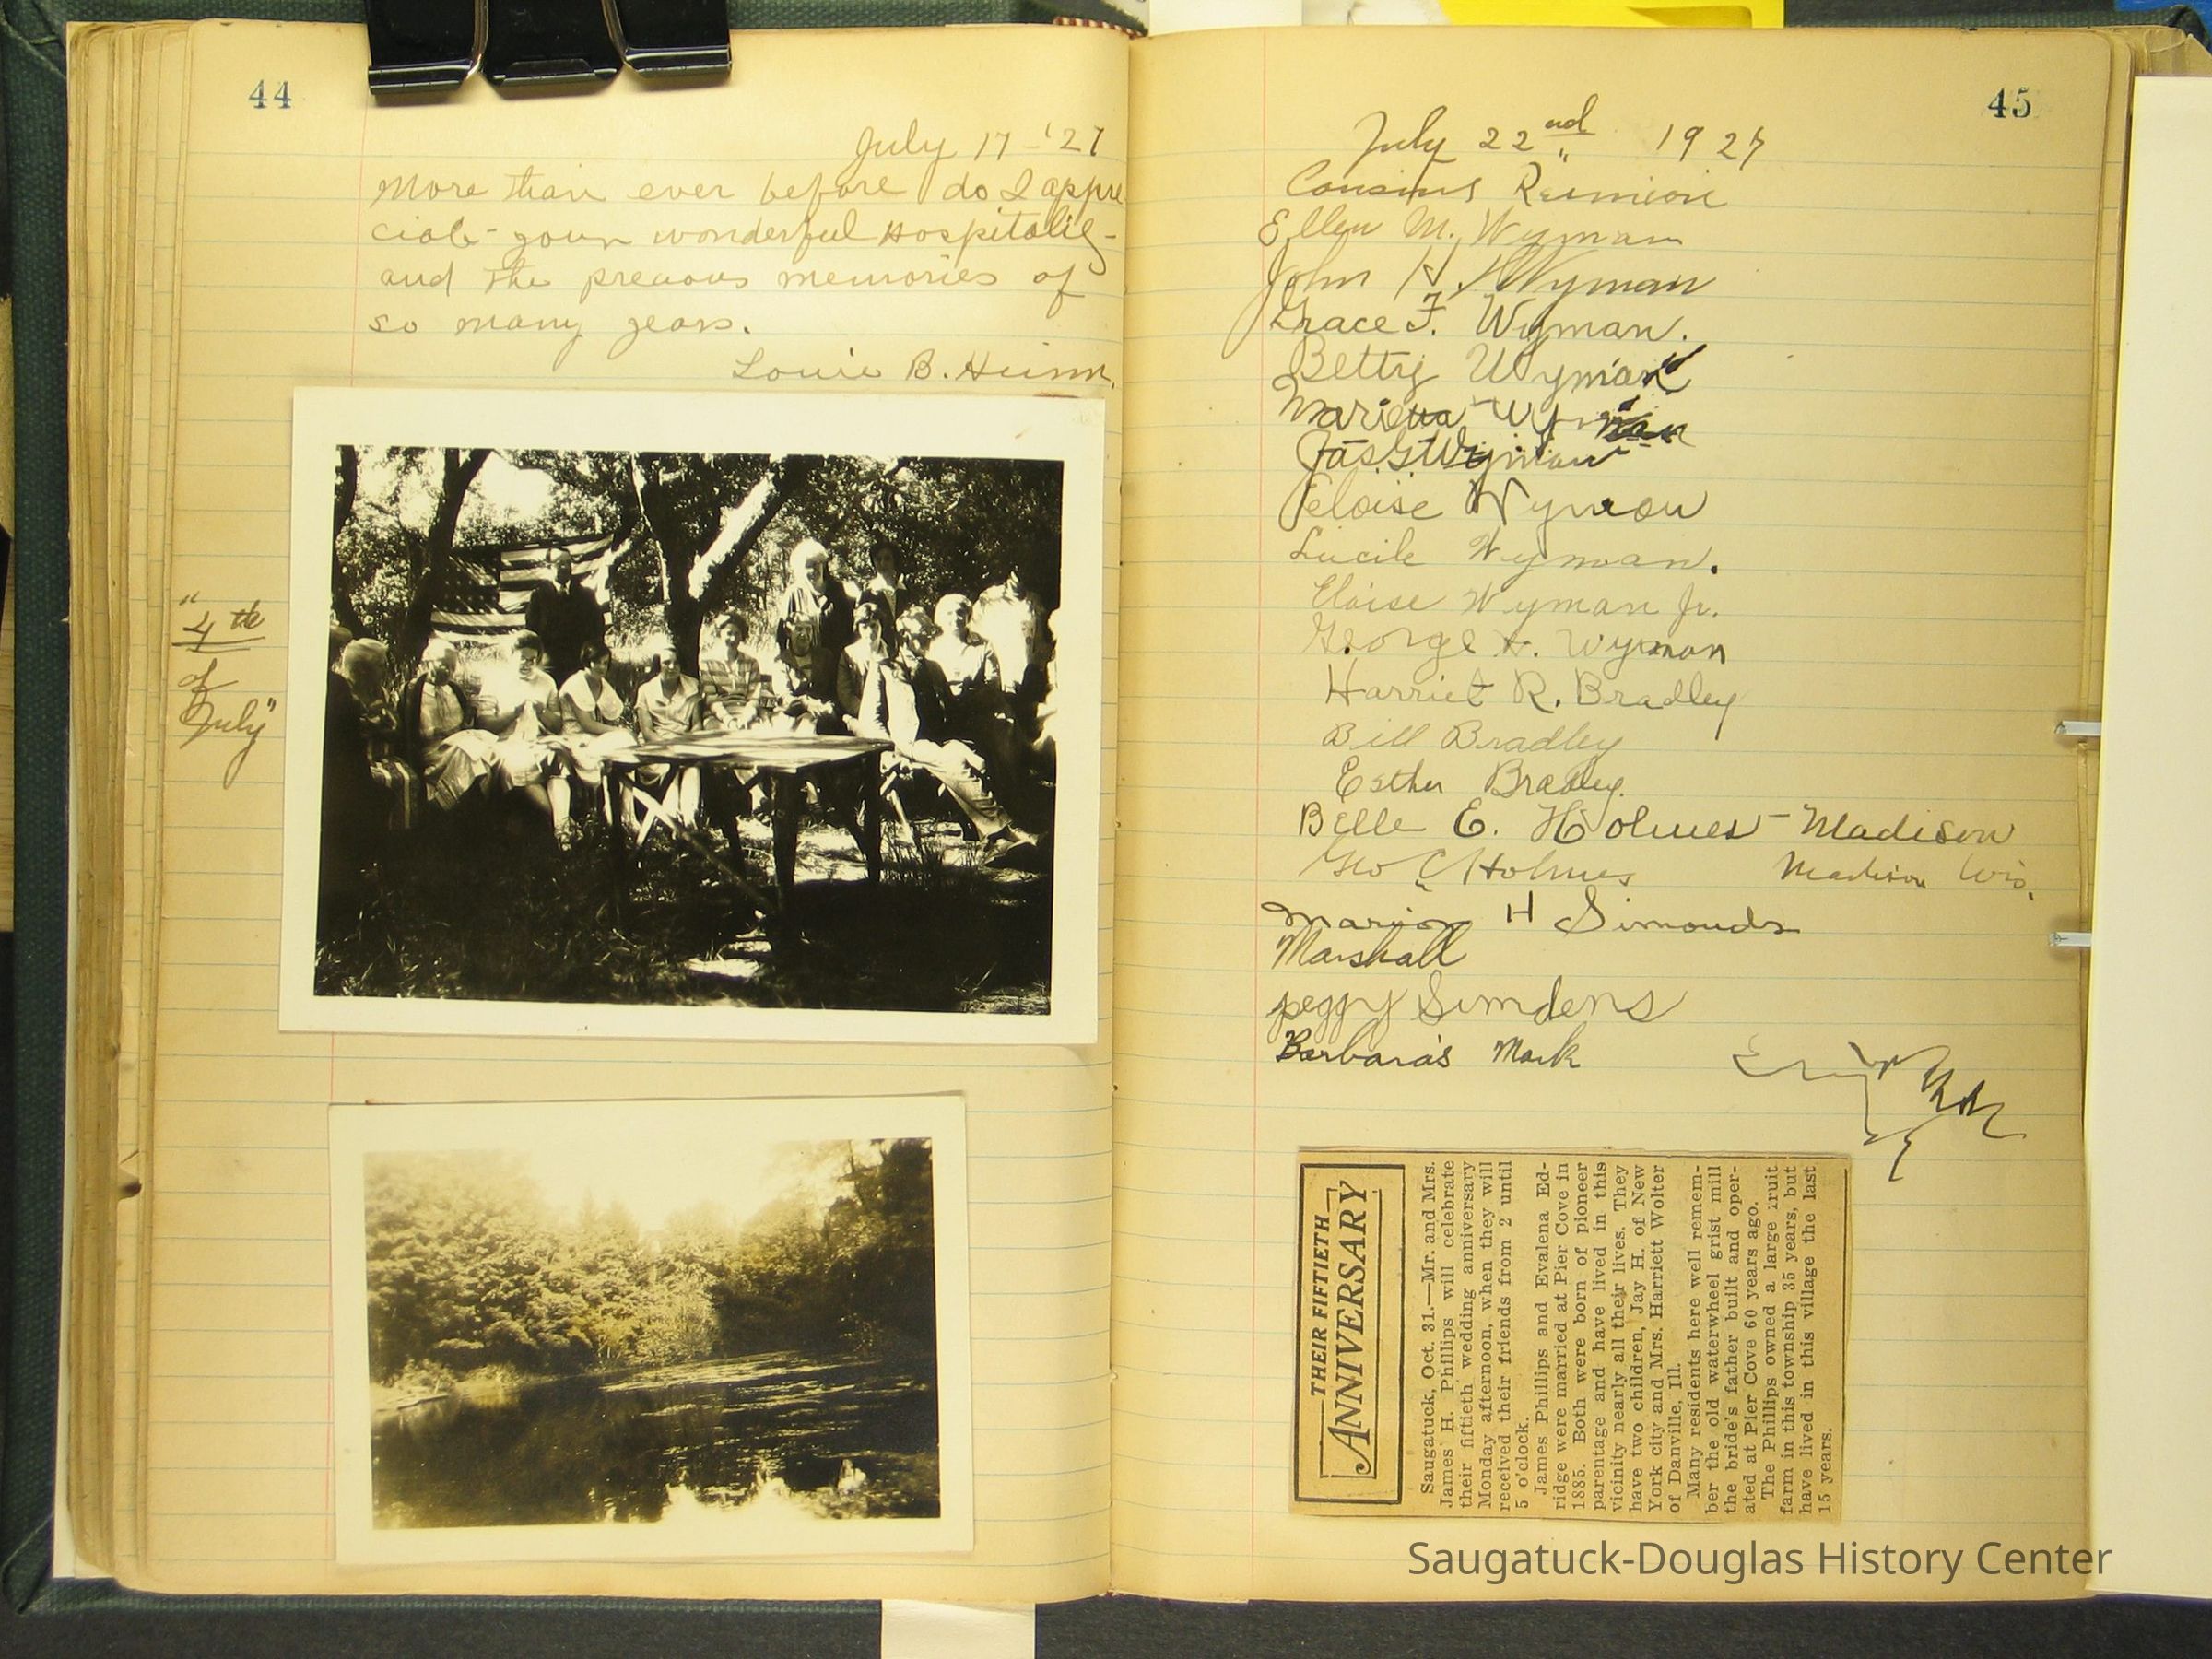 44
July 17 - '27
More than ever before do I appre
ciate your wonderful Hospitality
and the precious memories of
so many years.
Louie B.
"4th
of
July"
45
July 22nd 1927
Cousins Reunion
Ellen M. Wyman
John H. Wyman
Grace F. Wyman.
Betty Wyman
Marietta Wyman
Jas G Wyman
Eloise Wyman
Lucile Wyman.
Eloise Wyman Jr.
George Wyman
Harriet R. Bradley
Bill Bradley
Esther Bradley.
Belle E. Holmes - Madison
Geo C Holmes Madison Wis.
Marion H Simonds
Marshall
peggy Simdens
Barbara's Mark
THEIR FIFTIETH
ANNIVERSARY
Saugatuck, Oct. 31.—Mr. and Mrs.
James H. Phillips will celebrate
their fiftieth wedding anniversary
Monday afternoon, when they will
received their friends from 2 until
5 o'clock.
James Phillips and Evalena Ed-
ridge were married at Pier Cove in
1885. Both were born of pioneer
parentage and have lived in this
vicinity nearly all their lives. They
have two children, Jay H. of New
York city and Mrs. Harriett Wolter
of Danville, Ill.
Many residents here well remem-
ber the old waterwheel grist mill
the bride's father built and oper-
ated at Pier Cove 60 years ago.
The Phillips owned a large fruit
farm in this township 35 years, but
have lived in this village the last
15 years.
Saugatuck-Douglas History Center